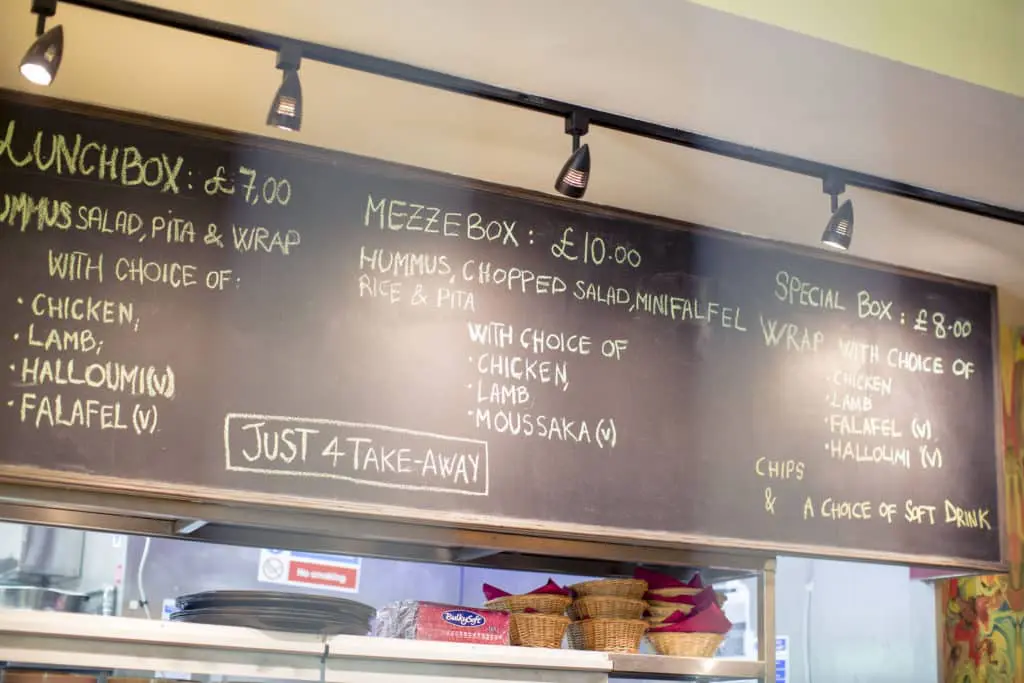 LUNCHBOX: £7,00
UMMUS SALAD, PITA & WRAP
WITH CHOICE OF:
• CHICKEN,
• LAMB,
• HALLOUMI (V)
• FALAFEL (V)
MEZZE BOX: £10.00
HUMMUS, CHOPPED SALAD, MINI FALFEL
RICE & PITA
WITH CHOICE OF
• CHICKEN,
• LAMB
• MOUSSAKA (V)
JUST 4 TAKE-AWAY
SPECIAL BOX: £8.00
WRAP WITH CHOICE OF
• CHICKEN
• LAMB
• FALAFEL (V)
• HALLOUMI (V)
CHIPS
& A CHOICE OF SOFT DRINK
No smoking
BulkySoft